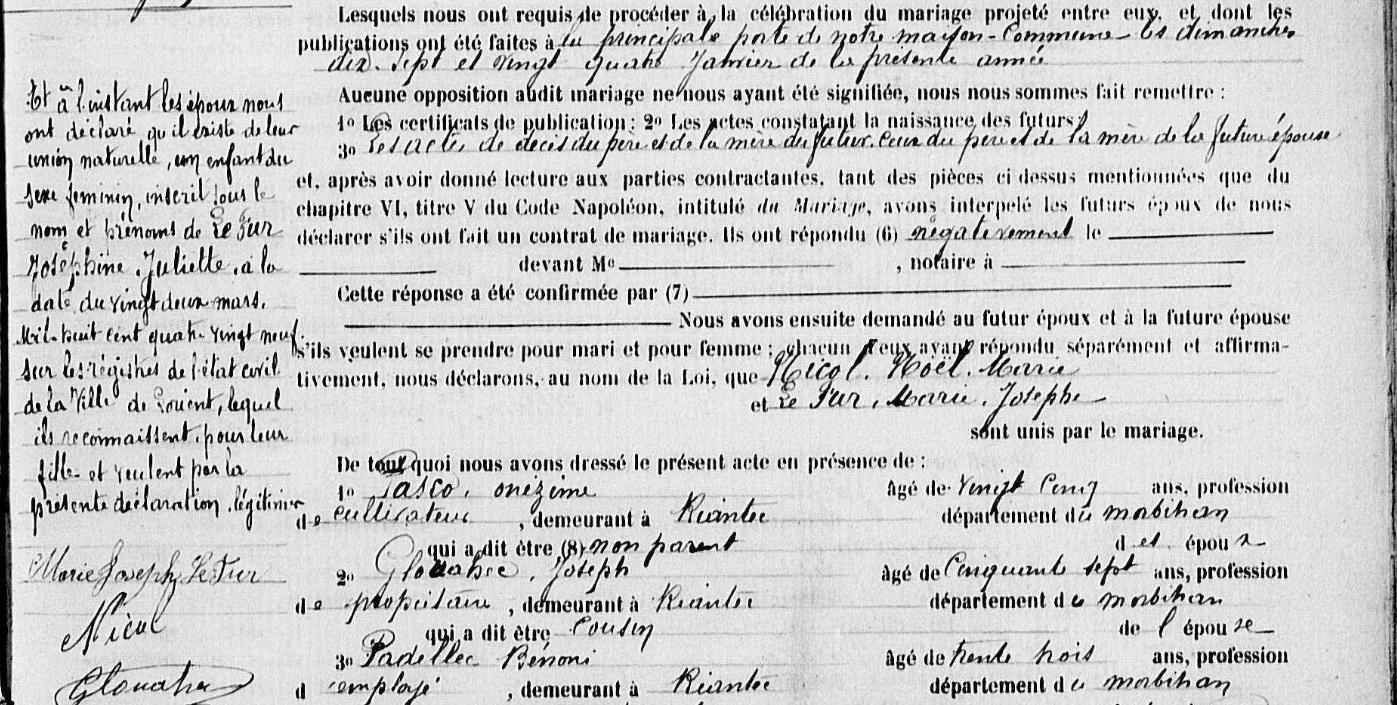 Lesquels nous ont requis de procéder à la célébration du mariage projeté entre eux, et dont les
publications ont été faites à la principale porte de notre maison-Commune les dimanches
dix-sept et vingt quatre Janvier de la présente année
Aucune opposition audit mariage ne nous ayant été signifiée, nous nous sommes fait remettre :
1o Les certificats de publication; 2o Les actes constatant la naissance des futurs;
3o Les actes de décès du père et de la mère du futur, ceux du père et de la mère de la future épouse
et, après avoir donné lecture aux parties contractantes, tant des pièces ci dessus mentionnées que du
chapitre VI, titre V du Code Napoléon, intitulé du Mariage, avons interpelé les futurs époux de nous
déclarer s'ils ont fait un contrat de mariage. Ils ont répondu (6) négativement le
devant Me , notaire à
Cette réponse a été confirmée par (7)
Nous avons ensuite demandé au futur époux et à la future épouse
s'ils veulent se prendre pour mari et pour femme ; chacun d'eux ayant répondu séparément et affirma-
tivement, nous déclarons, au nom de la Loi, que Nicol, Noël, Marie
et Le Fur, Marie, Josèphe
sont unis par le mariage.
De tout quoi nous avons dressé le présent acte en présence de :
1o Pasco, onézime âgé de vingt cinq ans, profession
de cultivateur , demeurant à Riantec département du morbihan
qui a dit être (8) non parent d es époux
2o Glouahec, Joseph âgé de Cinquante sept ans, profession
de propriétaire , demeurant à Riantec département du morbihan
qui a dit être Cousin de l'épouse
3o Padellec Bénoni âgé de trente trois ans, profession
d employé , demeurant à Riantec département du morbihan
Et à l'instant les époux nous
ont déclaré qu'il existe de leur
union naturelle, un enfant du
sexe féminin, inscrit sous le
nom et prénoms de Le Fur
Joséphine, Juliette, à la
date du vingt deux mars,
Mil-huit cent quatre vingt neuf
sur les régistres de l'état civil
de la Ville de Lorient, lequel
ils reconnaissent, pour leur
fille et veulent par la
présente déclaration, légitimer
Marie Joseph Le Fur
Nicol
Glouahec